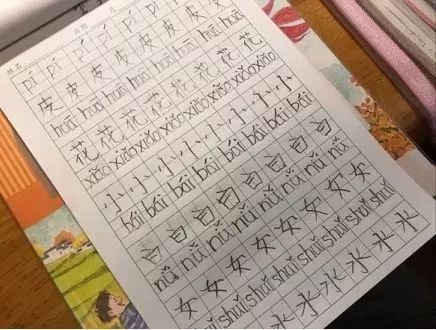 姓名
pí pí pí pí pí pí pí pí
皮 皮 皮 皮 皮 皮 皮 皮
huā huā huā huā huā huā huā huā
花 花 花 花 花 花 花 花
xiǎo xiǎo xiǎo xiǎo xiǎo xiǎo xiǎo xiǎo
小 小 小 小 小 小 小 小
bái bái bái bái bái bái bái bái
白 白 白 白 白 白 白 白
nǚ nǚ nǚ nǚ nǚ nǚ nǚ nǚ
女 女 女 女 女 女 女 女
shuǐ shuǐ shuǐ shuǐ shuǐ shuǐ shuǐ shuǐ
水 水 水 水 水 水